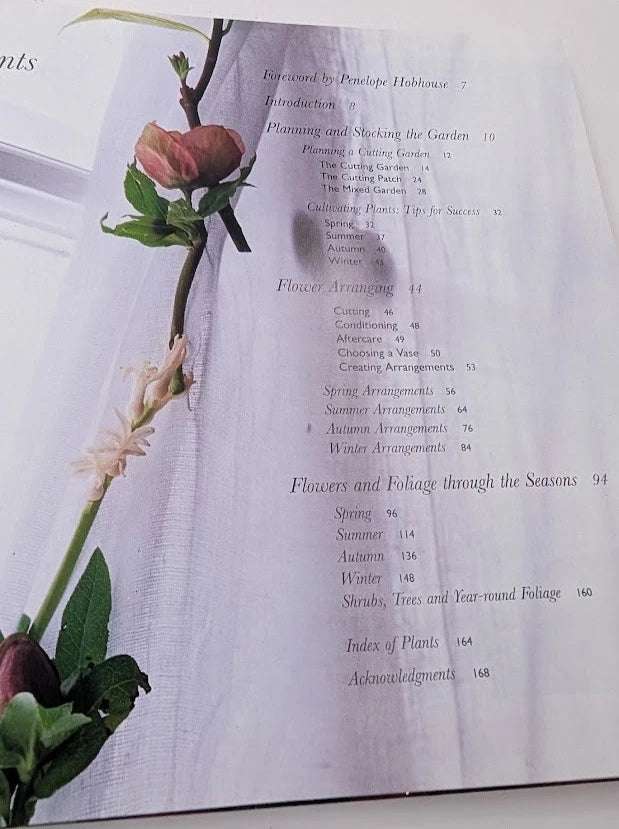 nts
Foreword by Penelope Hobhouse 7
Introduction 8
Planning and Stocking the Garden 10
Planning a Cutting Garden 12
The Cutting Garden 14
The Cutting Patch 24
The Mixed Garden 28
Cultivating Plants: Tips for Success 32
Spring 32
Summer 37
Autumn 40
Winter 43
Flower Arranging 44
Cutting 46
Conditioning 48
Aftercare 49
Choosing a Vase 50
Creating Arrangements 53
Spring Arrangements 56
Summer Arrangements 64
Autumn Arrangements 76
Winter Arrangements 84
Flowers and Foliage through the Seasons 94
Spring 96
Summer 114
Autumn 136
Winter 148
Shrubs, Trees and Year-round Foliage 160
Index of Plants 164
Acknowledgments 168